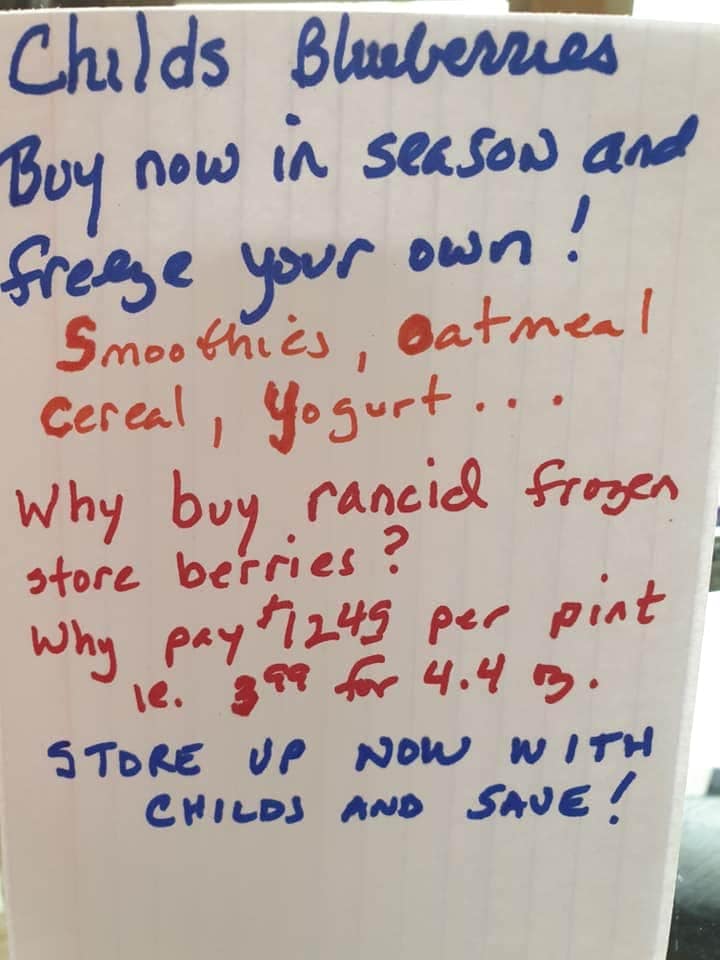 Childs Blueberries
Buy now in season and
freeze your own!
Smoothies, Oatmeal
Cereal, Yogurt...
Why buy rancid frozen
store berries?
Why pay $1249 per pint
ie. 3.99 for 4.4 oz.
STORE UP NOW WITH
CHILDS AND SAVE!